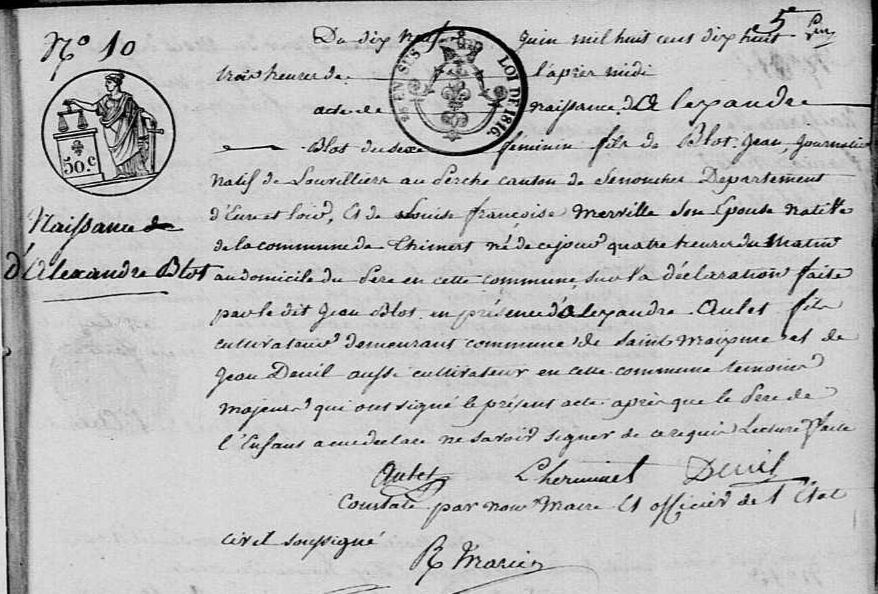 5e
No 10
Du dix neuf juin mil huit cent dix huit
trois heures de l'apres midi
acte de naissance d'Alexandre
Blot du sexe feminin fils de Blot Jean Journalier
natif de Louvilliers au Perche canton de Senonches Departement
d'Eure et Loir, Et de Louise françoise Merville Son Epouse native
de la commune de Thimert né de ce jour quatre heures du Matin
au domicile du Pere en cette commune sur la déclaration faite
par le dit Jean Blot, en présence d'Alexandre Aulet fils
cultivateur demeurant commune de Saint Maixme et de
Jean Deuil aussi cultivateur en cette commune temoins
majeurs qui ont signé le présent acte après que le Pere de
l'Enfant a eu declaré ne savoir signer de ce requis Lecture faite
Aulet Lherminet Deuil
Constaté par nous Maire Et officier de l'Etat
civil soussigné
R Marie
Naissance
d'Alexandre Blot
50.c
EN SUS
LOI DE 1816.